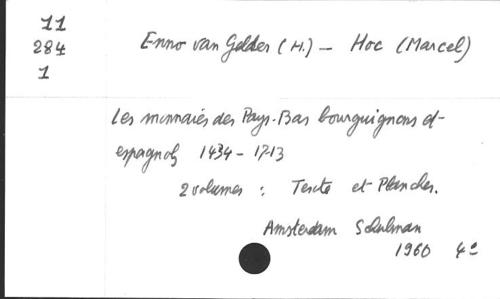 11
284
1
Enno van Gelder (H.) - Hoc (Marcel)
Les monnaies des Pays-Bas bourguignons et
espagnols 1434-1713
2 volumes : Texte et Planches.
Amsterdam Schulman
1960 4°